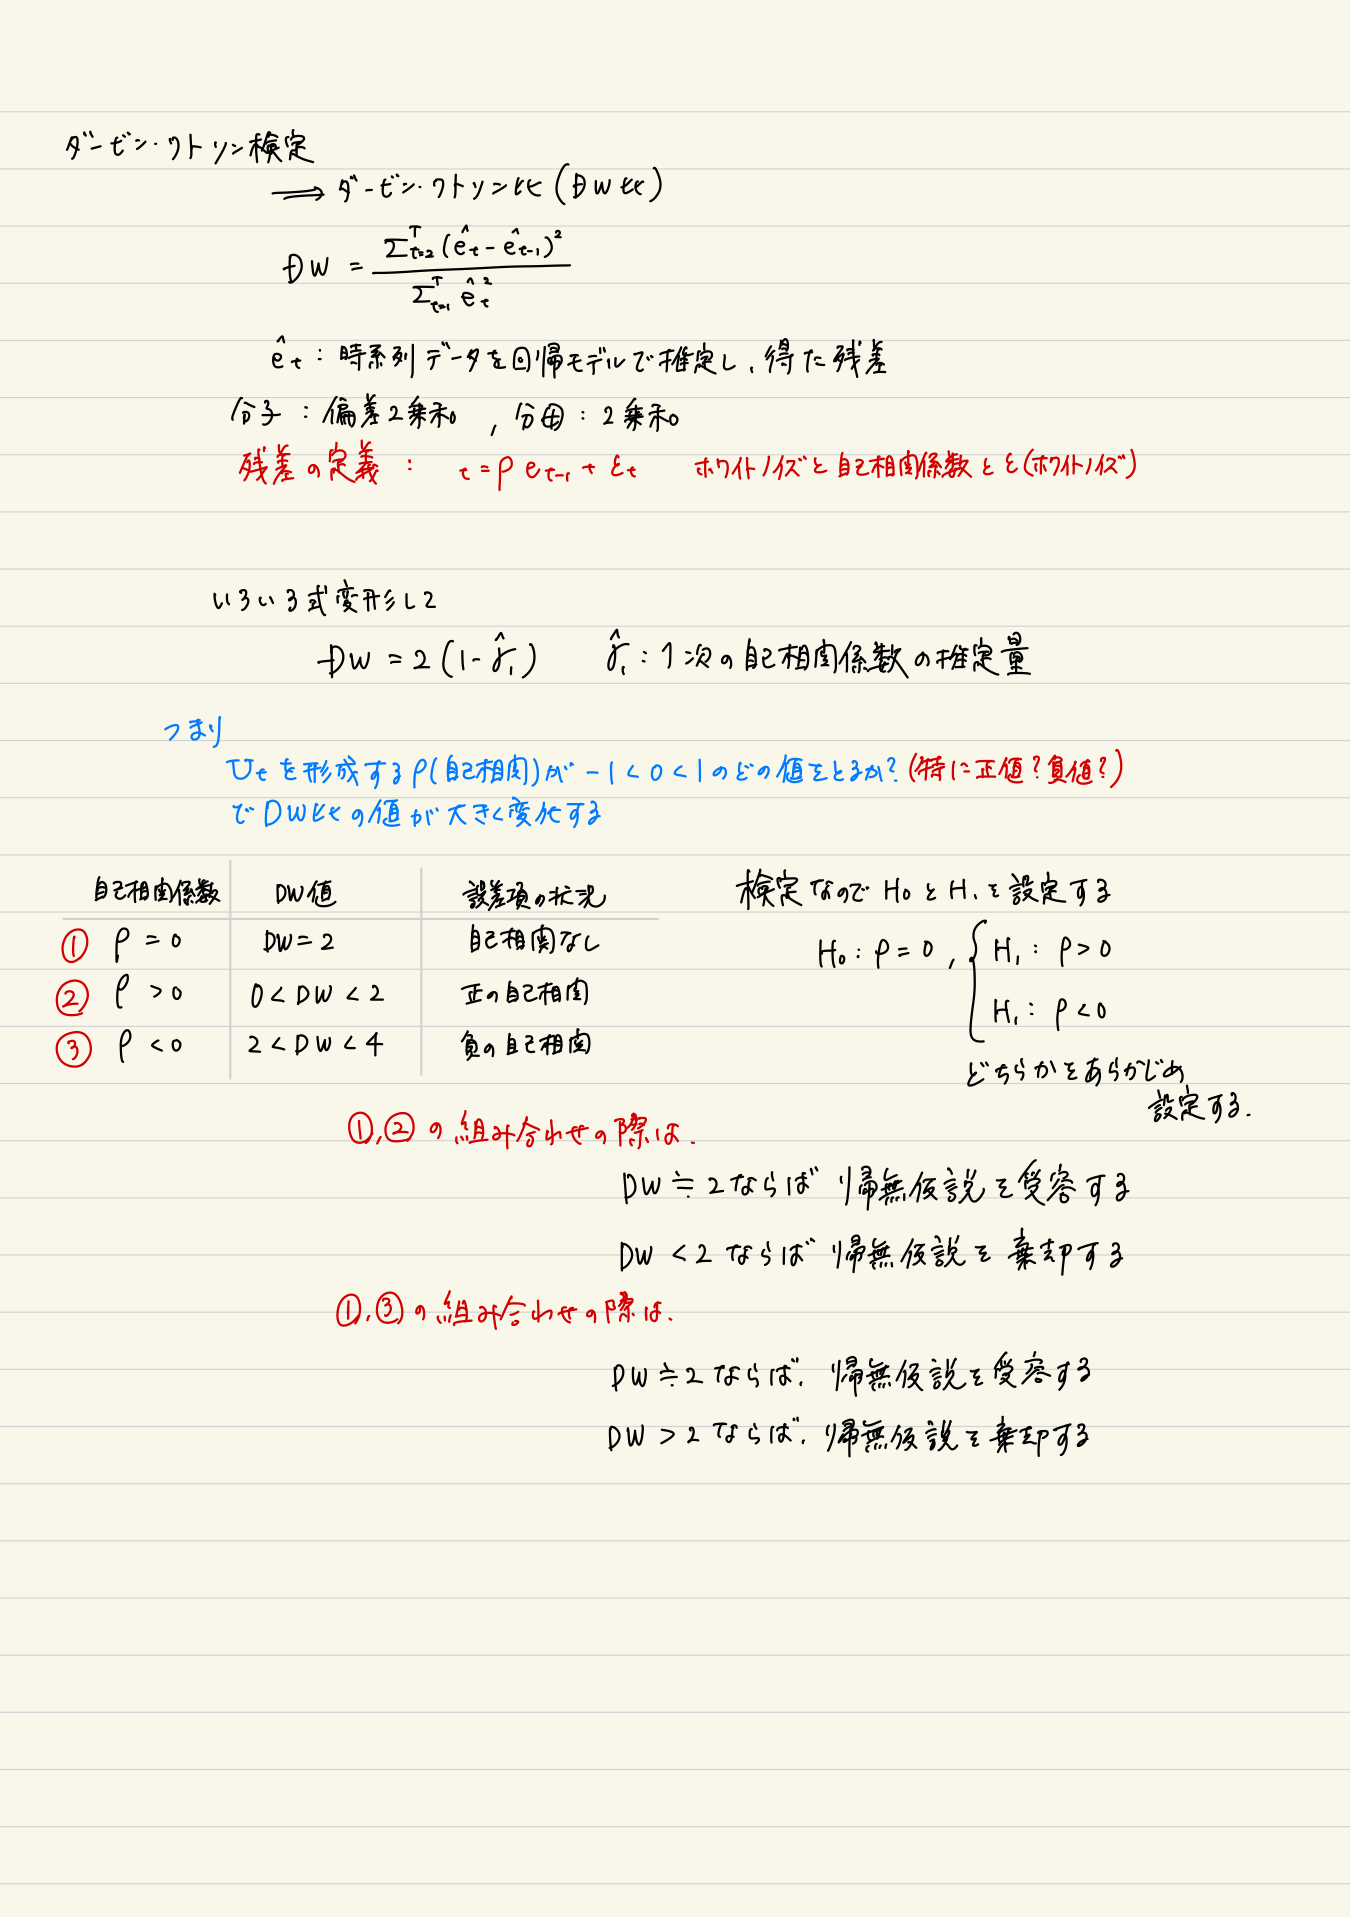 ダービン・ワトソン検定
⟹ ダービン・ワトソン比 (DW比)
DW = Σ^T_{t=2} (ê_t - ê_{t-1})² / Σ^T_{t=1} ê_t²
ê_t : 時系列データを回帰モデルで推定し、得た残差
分子 : 偏差2乗和。, 分母 : 2乗和。
残差の定義 : t = ρ e_{t-1} + ε_t ホワイトノイズと自己相関係数とε(ホワイトノイズ)
いろいろ式変形して
DW = 2 (1 - γ̂_1) γ̂_1 : 1次の自己相関係数の推定量
つまり
U_t を形成するρ(自己相関)が -1 < 0 < 1 のどの値をとるか? (特に正値?負値?)
でDW比の値が大きく変化する
自己相関係数 DW値 誤差項の状況
① ρ = 0 DW = 2 自己相関なし
② ρ > 0 0 < DW < 2 正の自己相関
③ ρ < 0 2 < DW < 4 負の自己相関
検定なのでH₀とH₁を設定する
H₀ : ρ = 0 , { H₁ : ρ > 0
H₁ : ρ < 0
どちらかをあらかじめ
設定する.
①,②の組み合わせの際は.
DW ≒ 2 ならば 帰無仮説を受容する
DW < 2 ならば 帰無仮説を棄却する
①,③の組み合わせの際は.
DW ≒ 2 ならば. 帰無仮説を受容する
DW > 2 ならば. 帰無仮説を棄却する